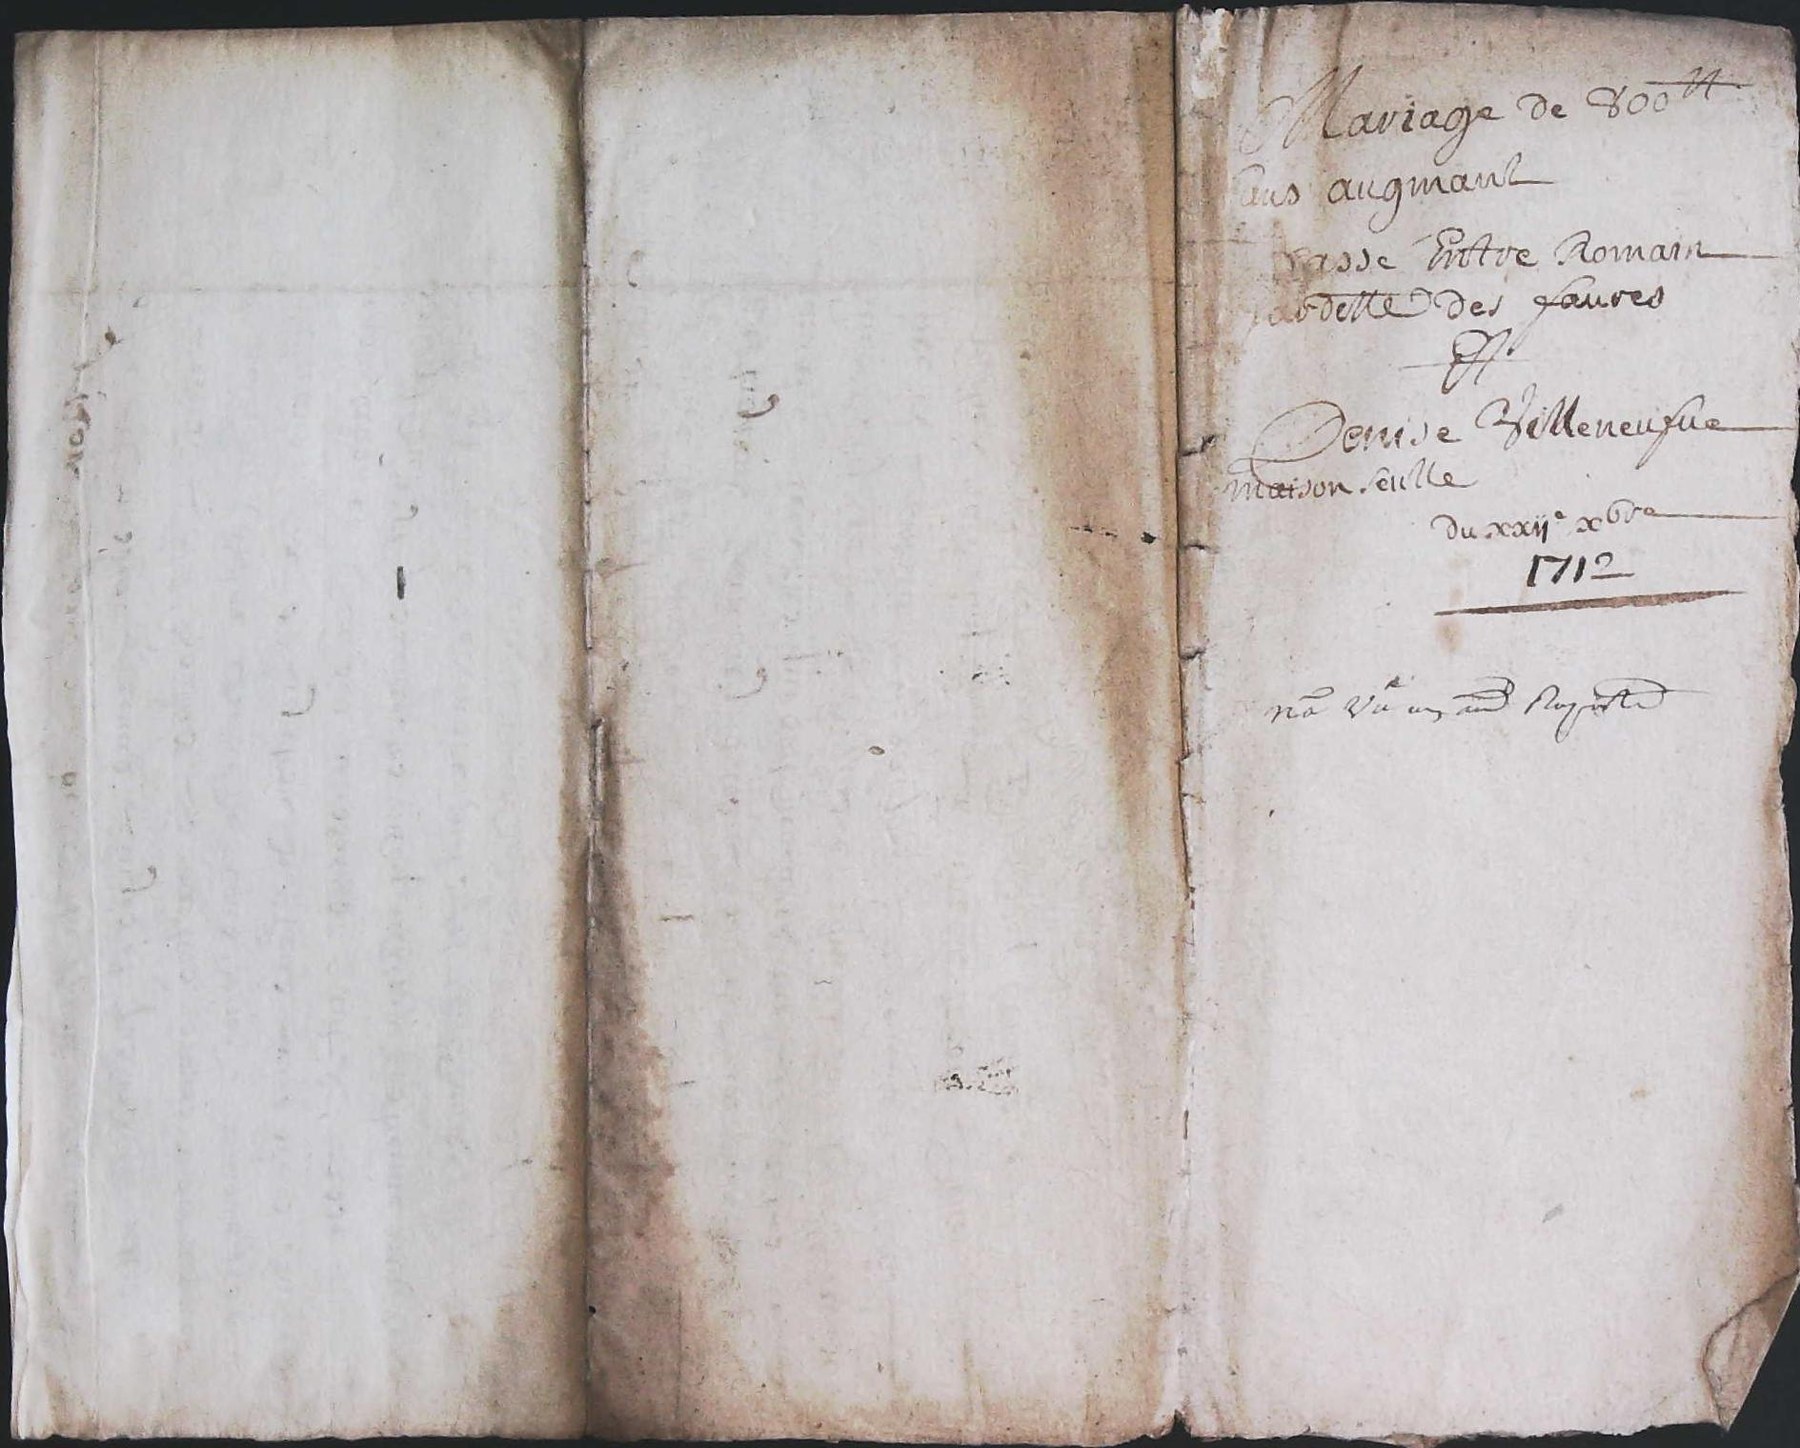 Mariage de 800 ₶
sans augmant
passe Entre Romain
Jardette des faures
Et
Denise Villeneufue
maison seulle
du xxije xbre
1712